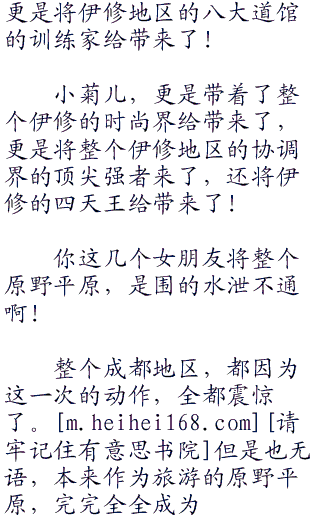 更是将伊修地区的八大道馆
的训练家给带来了！
小菊儿，更是带着了整
个伊修的时尚界给带来了，
更是将整个伊修地区的协调
界的顶尖强者来了，还将伊
修的四天王给带来了！
你这几个女朋友将整个
原野平原，是围的水泄不通
啊！
整个成都地区，都因为
这一次的动作，全都震惊
了。[m.heihei168.com][请
牢记住有意思书院]但是也无
语，本来作为旅游的原野平
原，完完全全成为